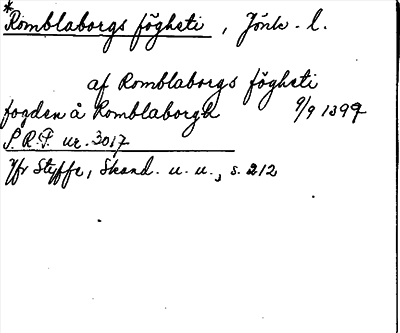 *Romblaborgs föghsti, Jönk. l.
af Romblaborgs föghsti
fogden å Romblaborgh 9/9 1399
S.R.P. nr. 3017
Jfr Styffe, Skand. u. u., s. 212